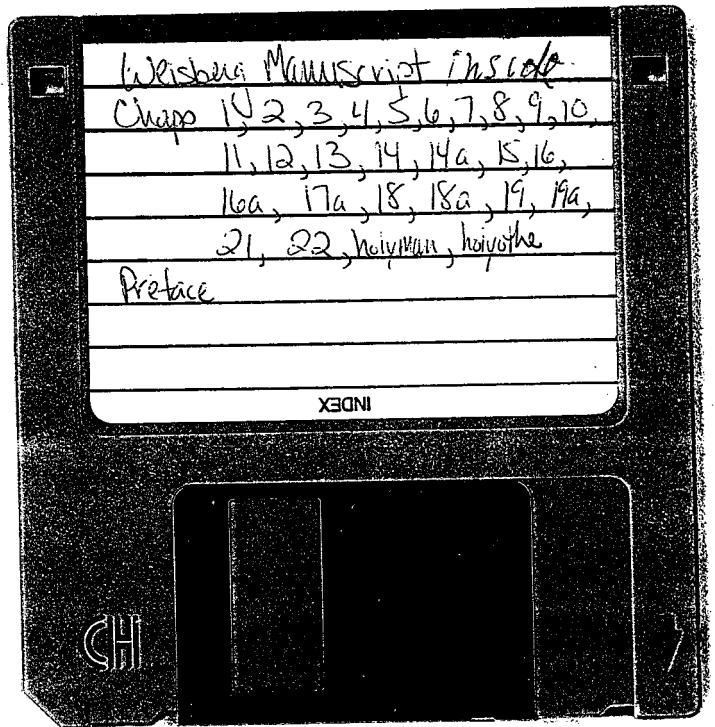 Weisberg Manuscript inside
Chaps 1, 2, 3, 4, 5, 6, 7, 8, 9, 10,
11, 12, 13, 14, 14a, 15, 16,
16a, 17a, 18, 18a, 19, 19a,
21, 22, holyman, holyothe
Preface
INDEX